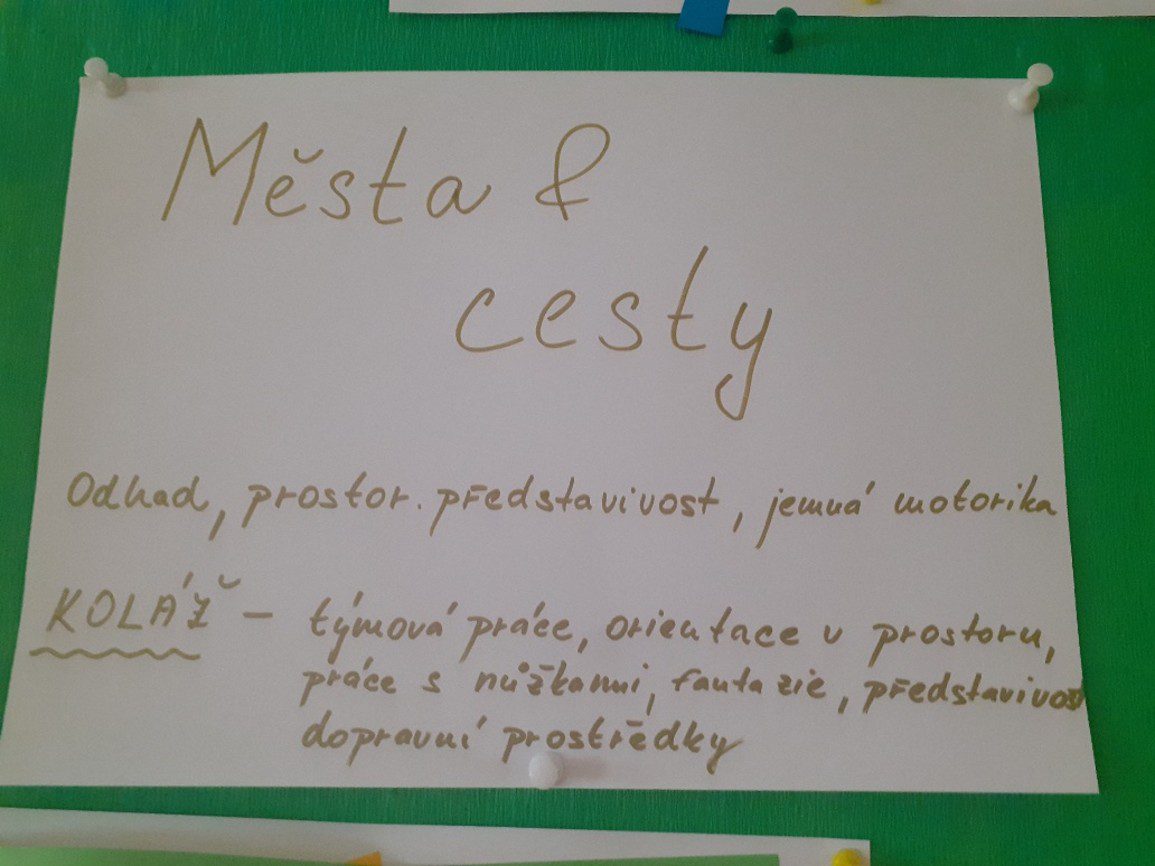 Města &
cesty
Odhad, prostor. představivost, jemná motorika
KOLÁŽ - týmová práce, orientace v prostoru,
práce s nůžkami, fantazie, představivost
dopravní prostředky